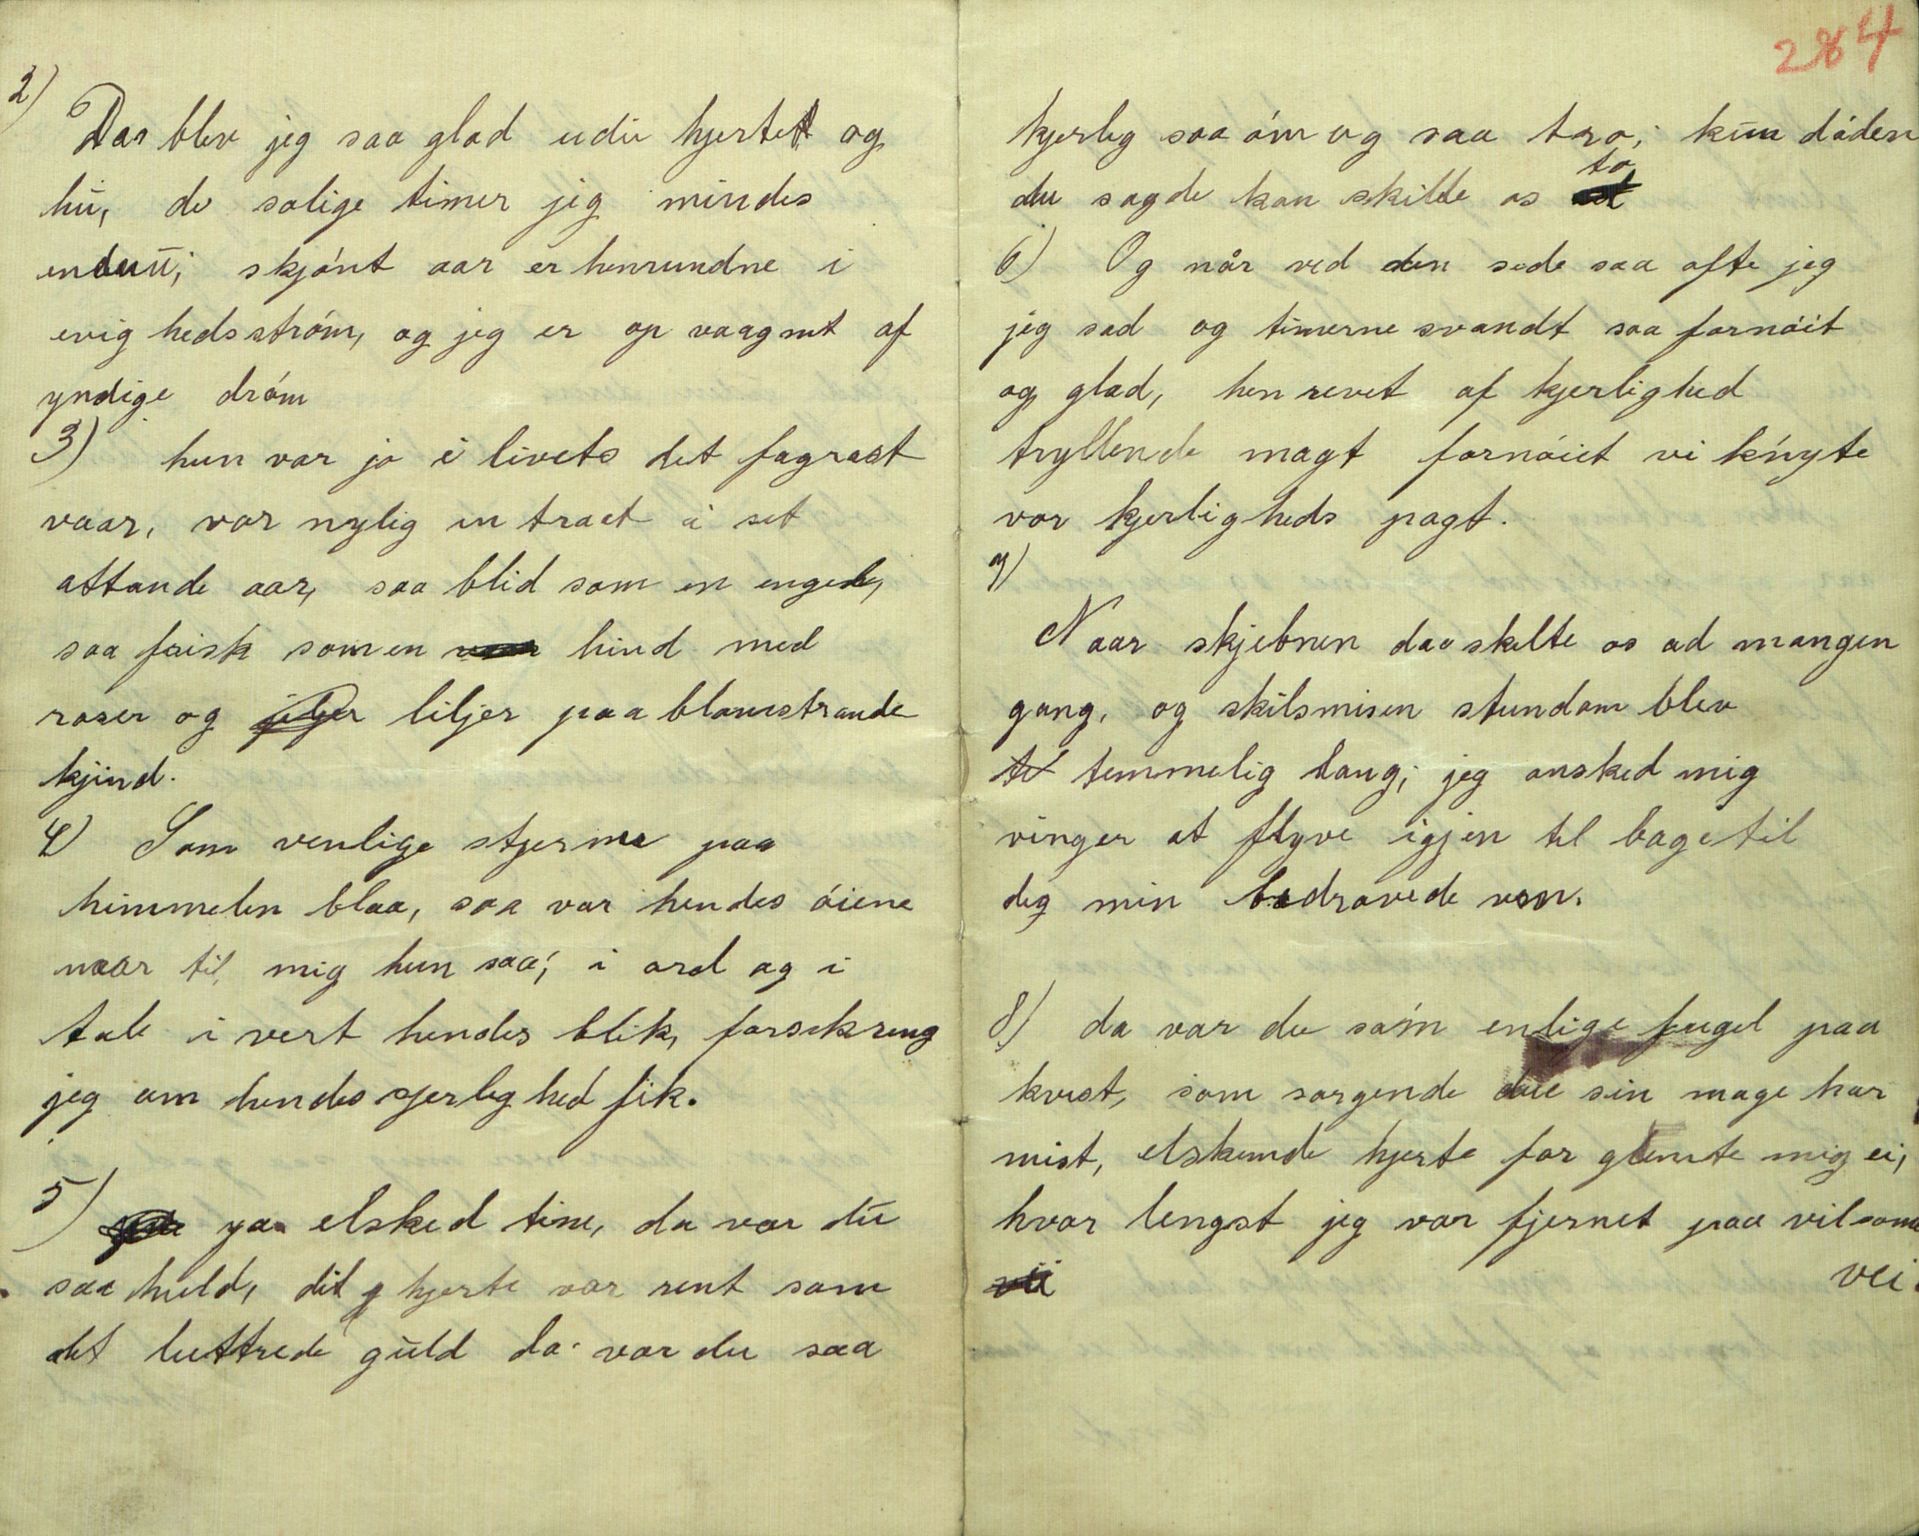 284
2)
Daa blev jeg saa glad udi hjertet og
hu, de salige timer jeg mindes
enduu; skjónt aar er henrundne i
evig hedsstróm, og jeg er op vaagnet af
yndige dróm
3) hun var jo i livets det fagrast
vaar, var nylig en traat i set
attande aar, saa blid som en engede,
saa frisk som en hind med
roser og liljer paa blomstrande
kjind.
4) Som venlige stjerne paa
himmelen blaa, saa var hendes óiene
naar til mig hun saa; i ord og i
tale i vert hendes blik, forsekreng
jeg om hendes kjerlig hed fik.
5) ya elsked tine, da var du
saa huld, dit hjerte var rent som
det luttrede guld da var du saa
kjerleg saa óm og saa tro; kun dóden
du sagde kan skille os to
6) Og når ved den sede saa ofte jeg
jeg sad og timerne svandt saa fornóiet
og glad, hen revet af kjerlighed
tryllende magt fornóiet vi knyte
vor kjerlig heds pagt.
7)
Naar skjebnen daa skelte os ad mangen
gang, og skilsmisen stundom blev
temmelig lang; jeg onsked mig
vinger at flyve igjen til bage til
deg min bedrovede ven.
8) da var du sóm enlige fugel paa
kvest, som sorgende due sin mage har
mist, elskende hjerte for glemte mig ei,
hvor lengst jeg var fjernet paa vilsome
vei.